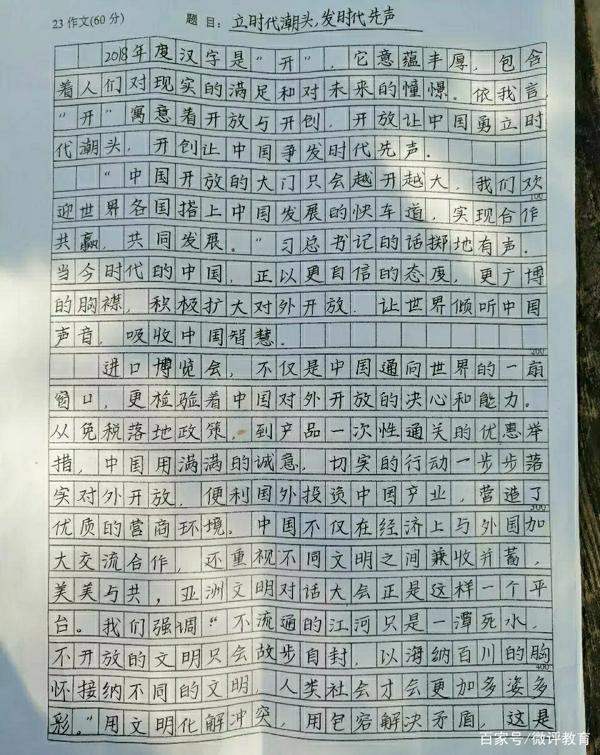 23 作文(60分) 题 目: 立时代潮头,发时代先声
2018年度汉字是“开”,它意蕴丰厚,包含
着人们对现实的满足和对未来的憧憬。依我言,
“开”寓意着开放与开创,开放让中国勇立时
代潮头,开创让中国争发时代先声.
“中国开放的大门只会越开越大,我们欢
100
迎世界各国搭上中国发展的快车道,实现合作
共赢,共同发展。”习总书记的话掷地有声.
当今时代的中国,正以更自信的态度,更广博
的胸襟,积极扩大对外开放.让世界倾听中国
声音,吸收中国智慧.
200
进口博览会,不仅是中国通向世界的一扇
窗口,更检验着中国对外开放的决心和能力。
从免税落地政策,到产品一次性通关的优惠举
措,中国用满满的诚意,切实的行动一步步落
实对外开放,便利国外投资中国产业,营造了
300
优质的营商环境。中国不仅在经济上与外国加
大交流合作,还重视不同文明之间兼收并蓄,
美美与共,亚洲文明对话大会正是这样一个平
台。我们强调“不流通的江河只是一潭死水,
不开放的文明只会故步自封,以海纳百川的胸
400
怀接纳不同的文明,人类社会才会更加多姿多
彩。”用文明化解冲突,用包容解决矛盾,这是
百家号/微评教育